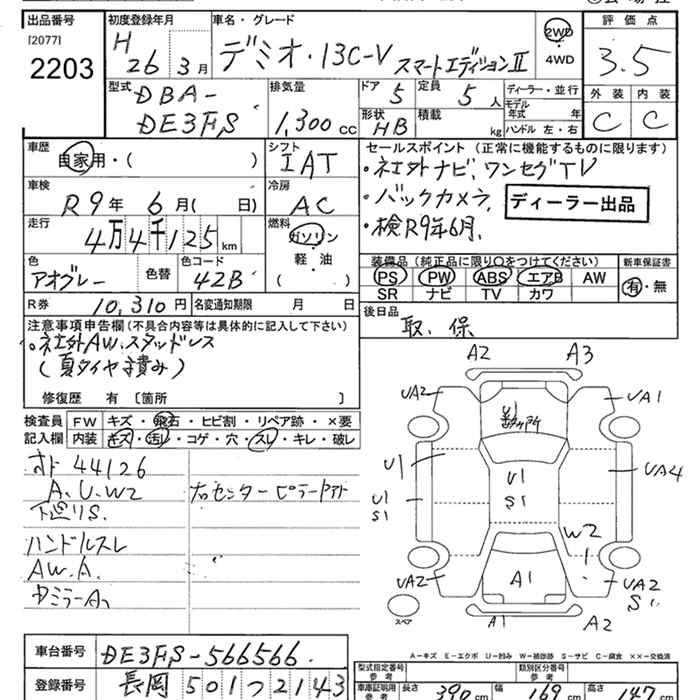 出品番号 初度登録年月 車名・グレード 評価点
[2077]
2203
H 26年 3月
デミオ・13C-V スマートエディションⅡ
2WD
4WD
3.5
型式
DBA-
DE3FS
排気量
1,300 cc
ドア 5
定員 5 人
形状 HB
積載 kg
ディーラー・並行
モデル年式 年
ハンドル 左・右
外装 内装
C C
車歴
自家用・( )
シフト
IAT
セールスポイント (正常に機能するものに限ります)
・社外ナビ、ワンセグTV
・バックカメラ、
・検R9年6月、
ディーラー出品
車検
R9年 6月( 日)
冷房
AC
走行
4万4千125 km
燃料
ガソリン
軽・油
( )
色
アオグレー
色替
色コード
42B
装備品 (純正品に限り○をつけてください)
PS PW ABS エアB AW
SR ナビ TV カワ
新車保証書
有・無
R券 10,310円 名変通知期限 月 日
後日品
取、保
注意事項申告欄(不具合内容等は具体的に記入して下さい)
。社外AW、スタッドレス
(夏タイヤ積み)
修復歴 有 〔箇所 〕
検査員記入欄
FW キズ・飛石・ヒビ割・リペア跡・×要
内装 キズ・汚レ・コゲ・穴・スレ・キレ・破レ
オド 44126
A、U、W2
右センターピラー
ハンドルスレ
AW、A
A2 A3
UA2 UA1
U1
U1
S1
U1
S1
UA4
W2
UA2 A1 UA2
S1
A1 A2
スペア
A-キズ E-エクボ U-凹み W-補修跡 S-サビ C-腐食 ××-交換済
車台番号 DE3FS-566566
登録番号 長岡 501つ2143
型式指定番号
参考
類別区分番号
参考
車庫証明用
参考
長さ 390 cm 幅 169 cm 高さ 147 cm